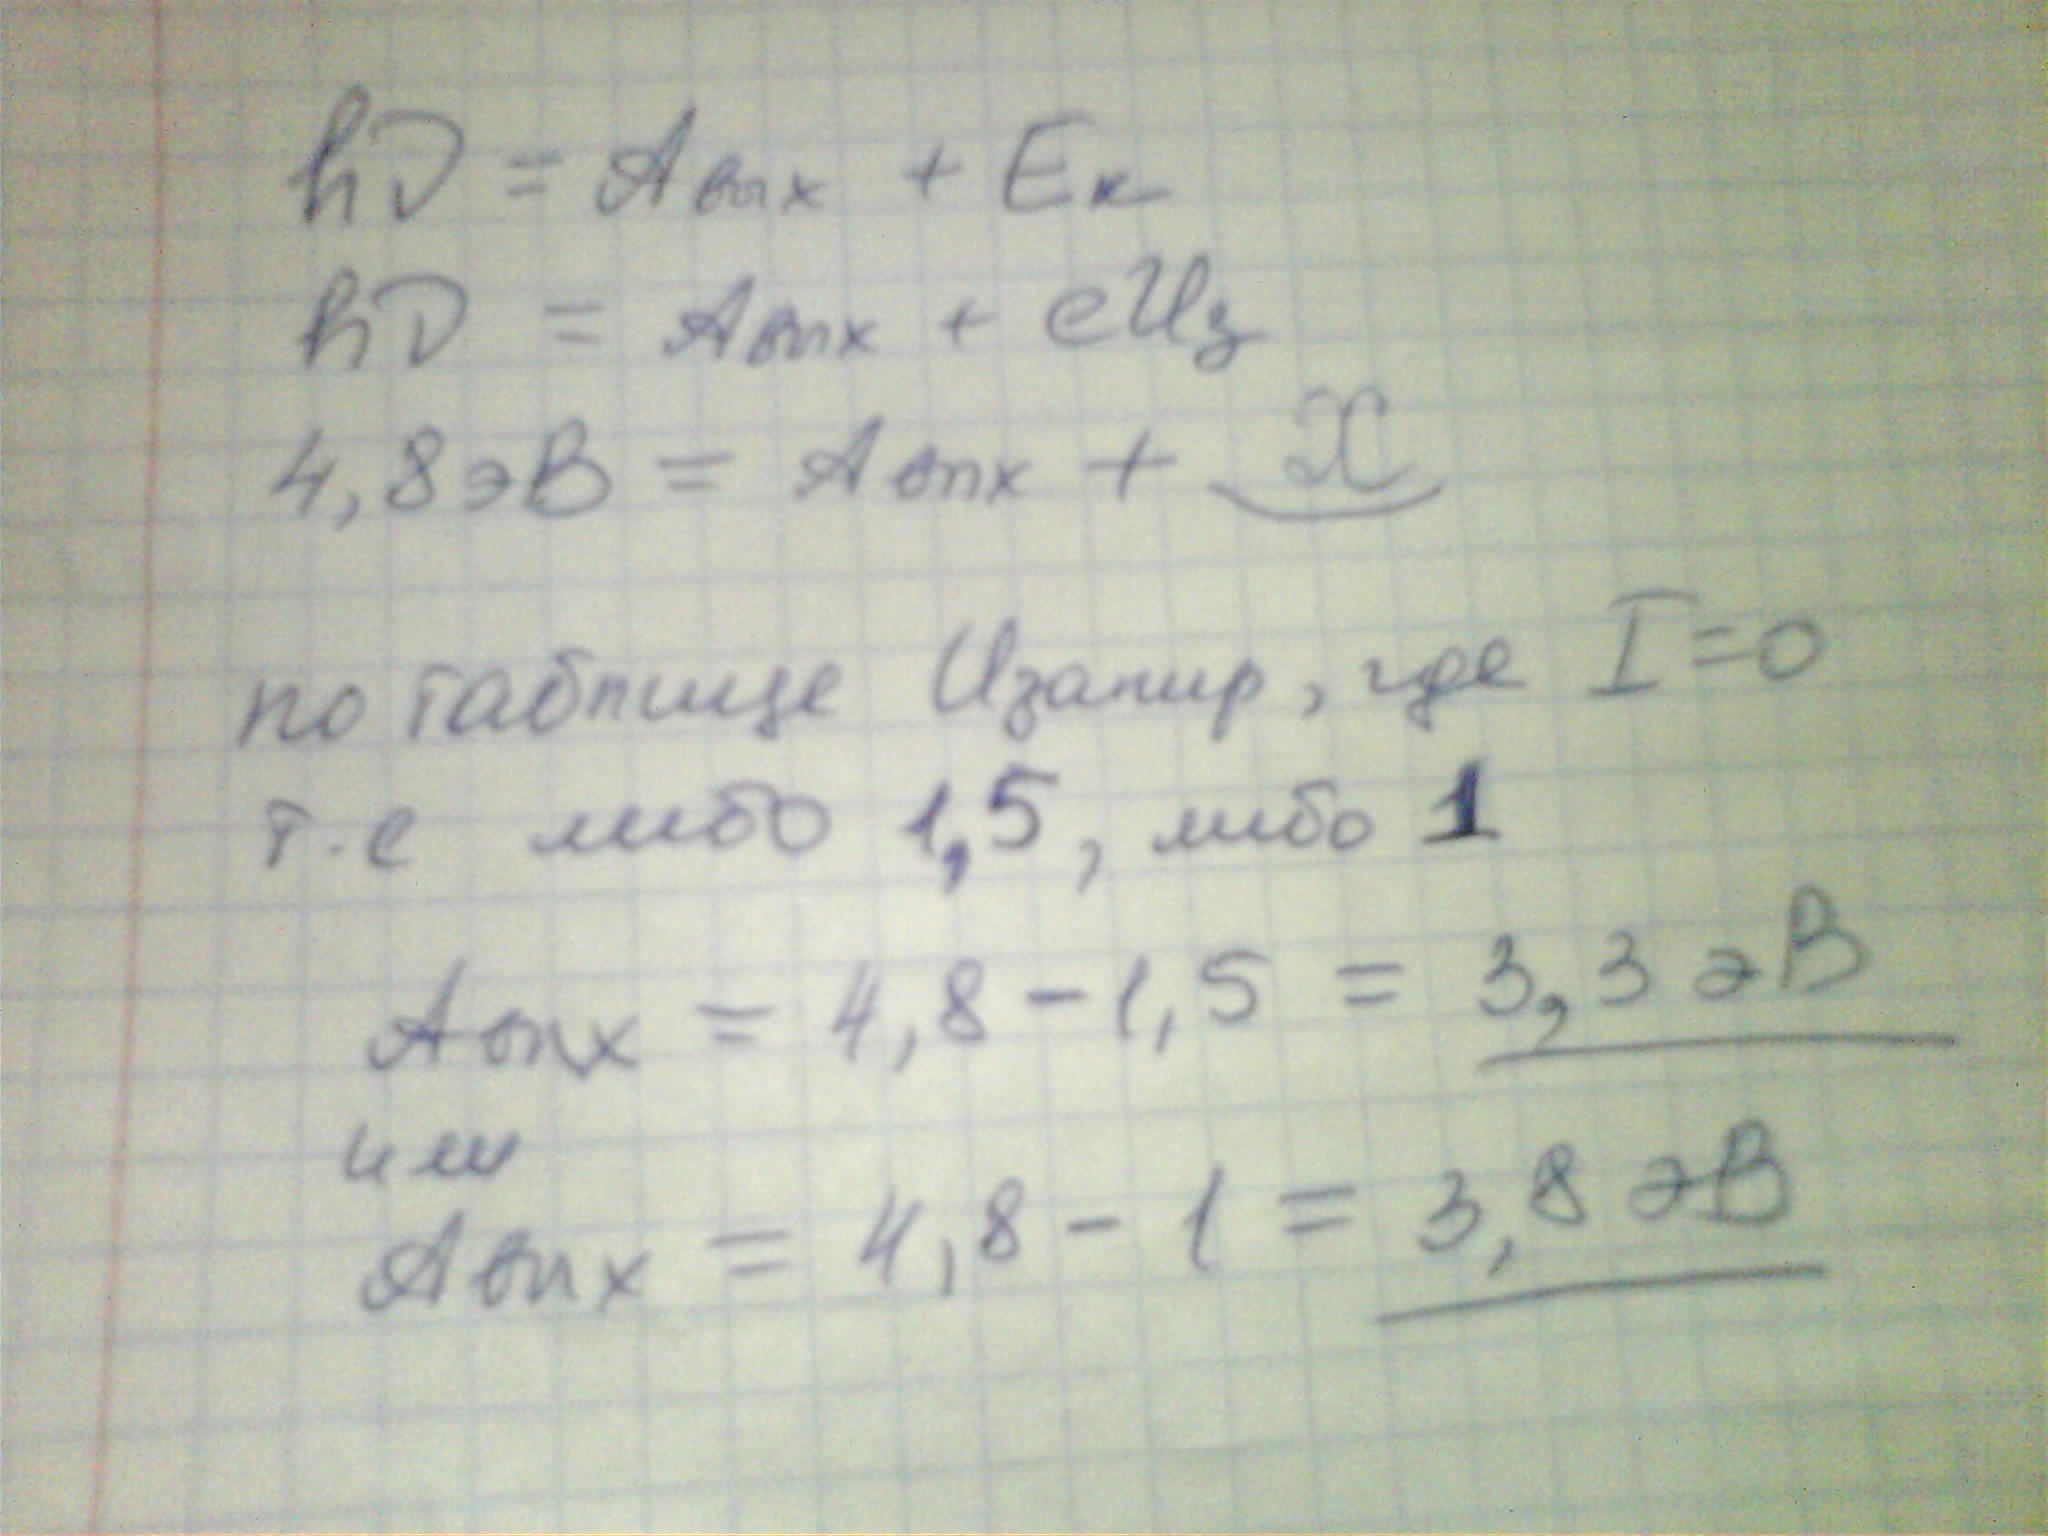 hν = Aвых + Eк
hν = Aвых + eUз
4,8эВ = Aвых + X
по таблице Uзапир, где I=0
т.е либо 1,5, либо 1
Aвых = 4,8-1,5 = 3,3эВ
или
Aвых = 4,8-1 = 3,8эВ